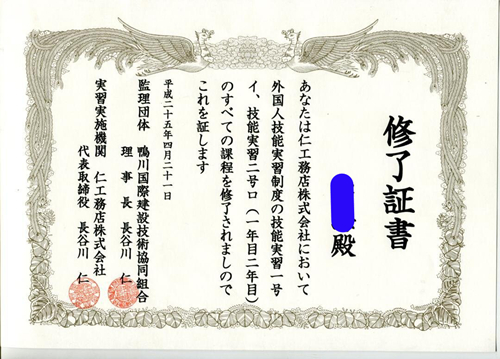 修了証書
殿
あなたは仁工務店株式会社において
外国人技能実習制度の技能実習一号
イ、技能実習二号ロ(一年目二年目)
のすべての課程を修了されましので
これを証します
平成二十五年四月二十一日
監理団体 鴨川国際建設技術協同組合
理事長 長谷川 仁
実習実施機関 仁工務店株式会社
代表取締役 長谷川 仁